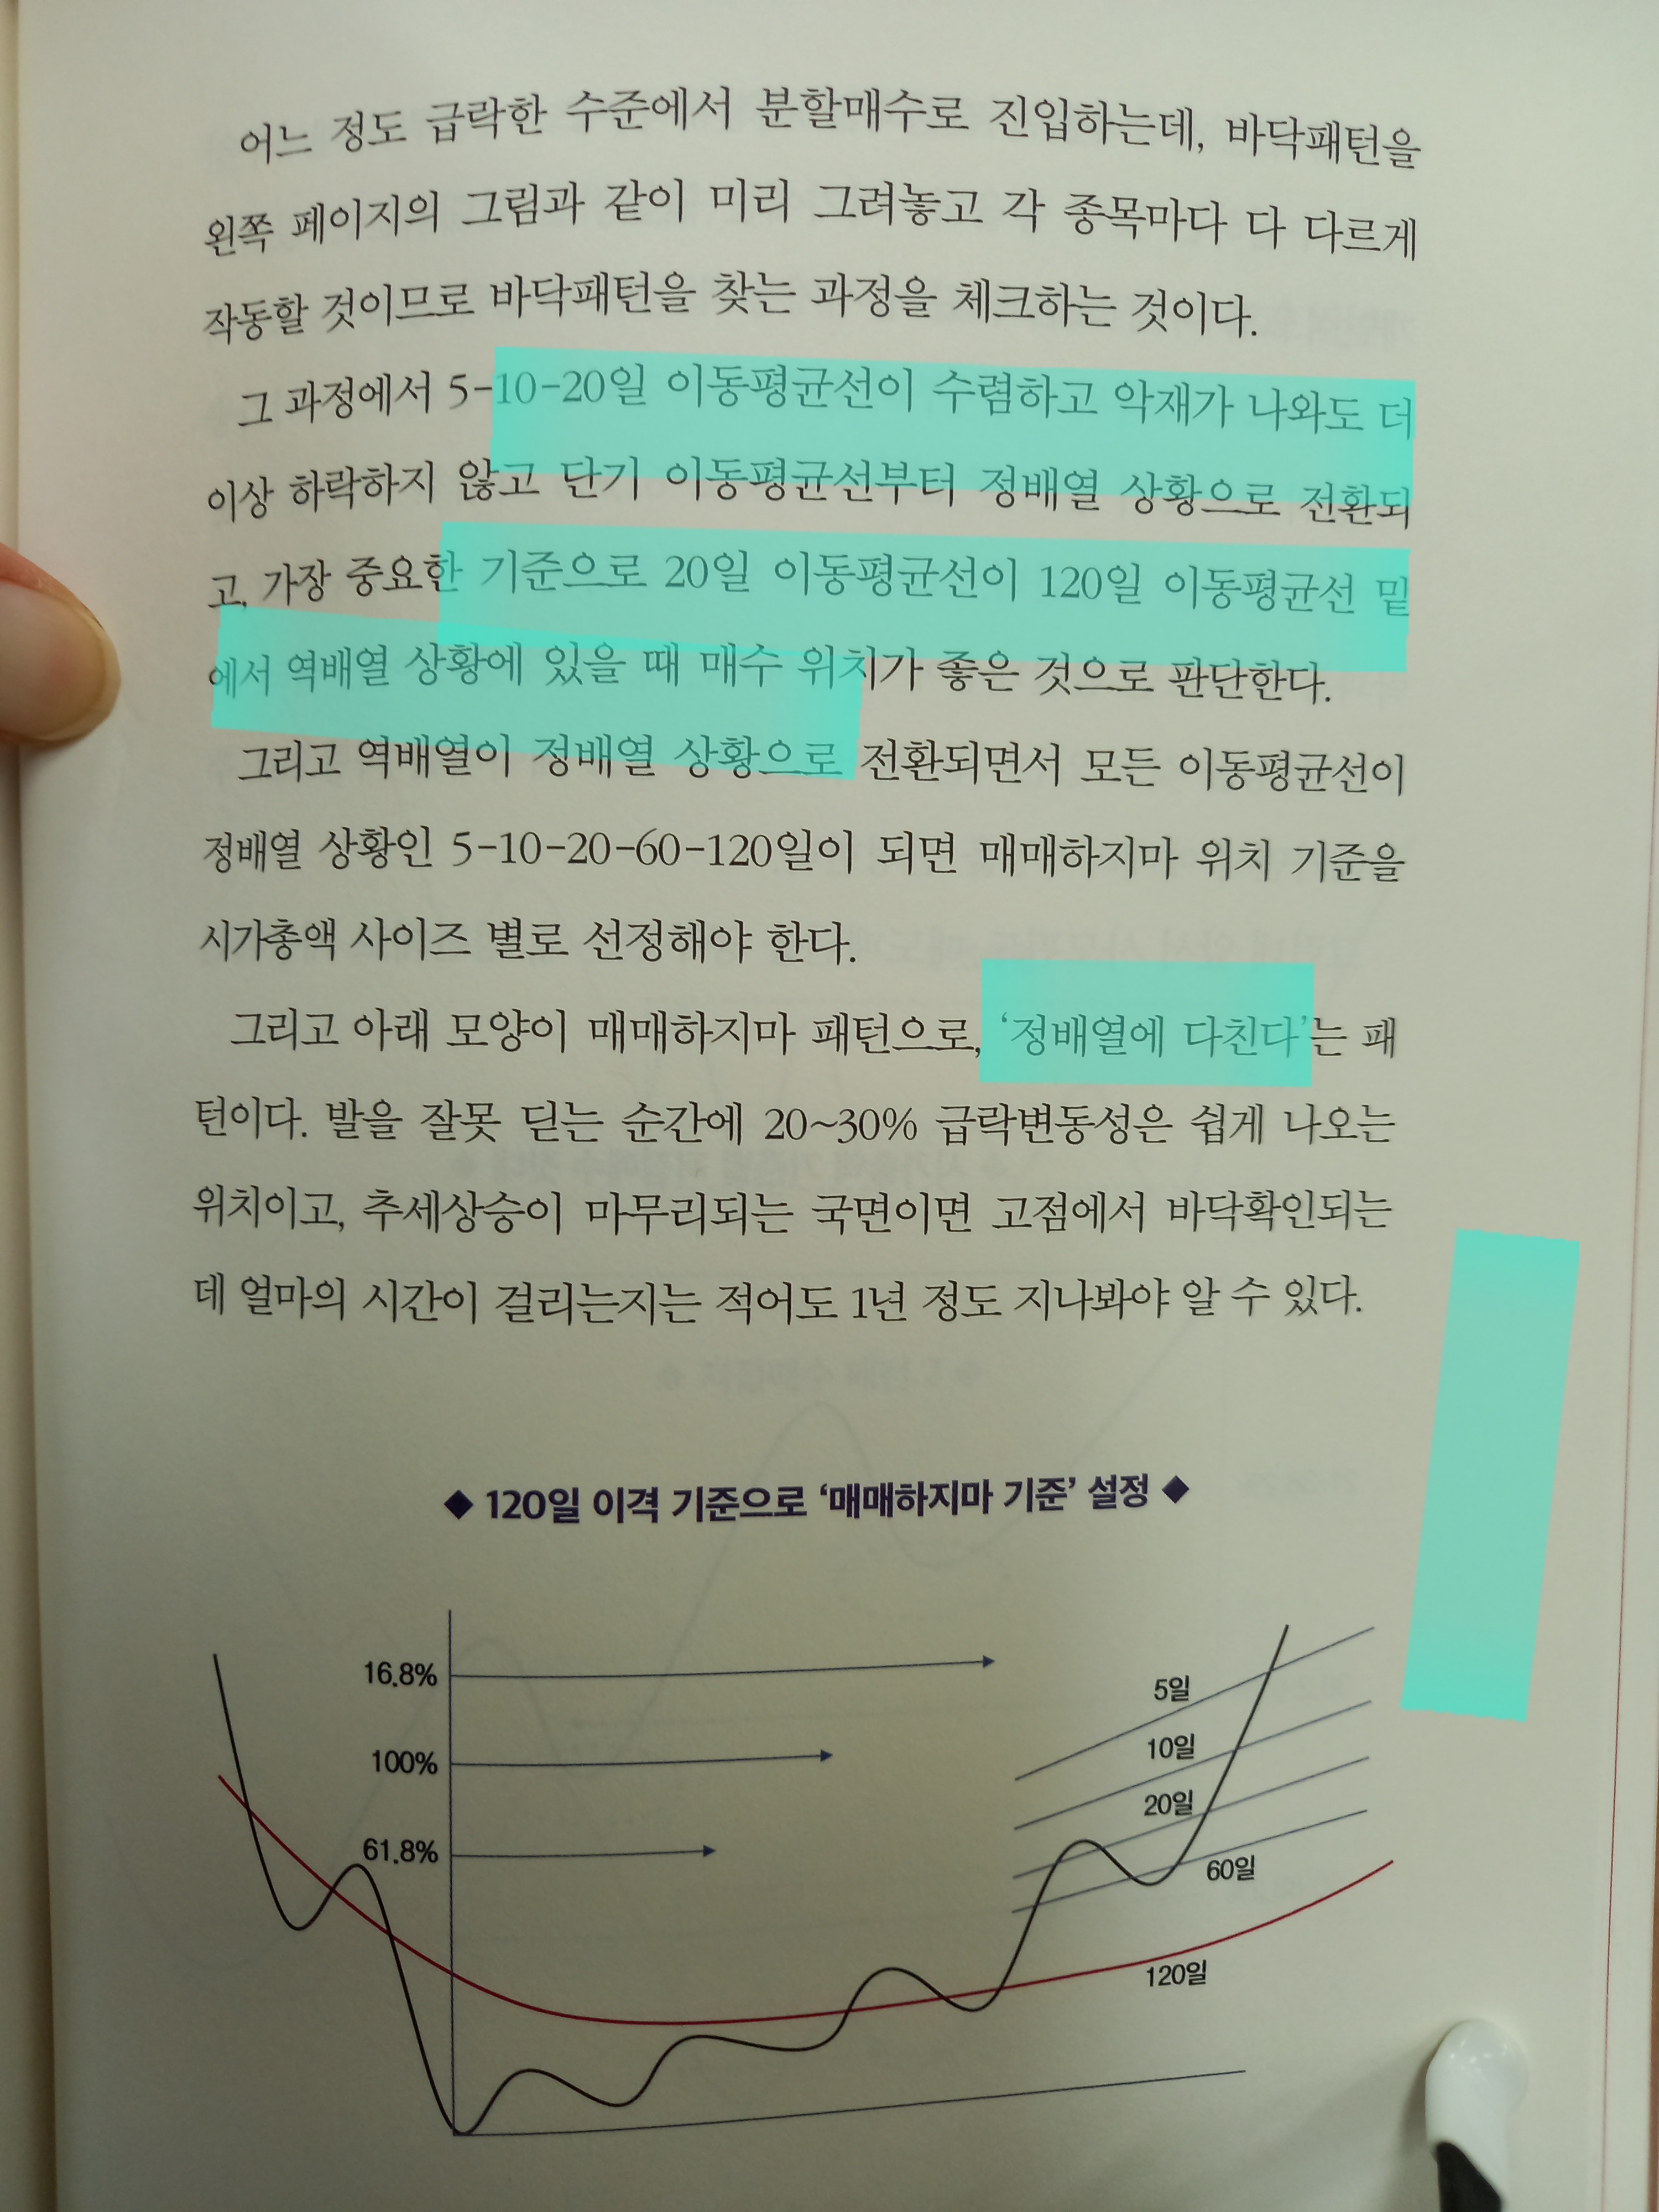 어느 정도 급락한 수준에서 분할매수로 진입하는데, 바닥패턴을
왼쪽 페이지의 그림과 같이 미리 그려놓고 각 종목마다 다 다르게
작동할 것이므로 바닥패턴을 찾는 과정을 체크하는 것이다.
그 과정에서 5-10-20일 이동평균선이 수렴하고 악재가 나와도 더
이상 하락하지 않고 단기 이동평균선부터 정배열 상황으로 전환되
고, 가장 중요한 기준으로 20일 이동평균선이 120일 이동평균선 밑
에서 역배열 상황에 있을 때 매수 위치가 좋은 것으로 판단한다.
그리고 역배열이 정배열 상황으로 전환되면서 모든 이동평균선이
정배열 상황인 5-10-20-60-120일이 되면 매매하지마 위치 기준을
시가총액 사이즈 별로 선정해야 한다.
그리고 아래 모양이 매매하지마 패턴으로, ‘정배열에 다친다’는 패
턴이다. 발을 잘못 딛는 순간에 20~30% 급락변동성은 쉽게 나오는
위치이고, 추세상승이 마무리되는 국면이면 고점에서 바닥확인되는
데 얼마의 시간이 걸리는지는 적어도 1년 정도 지나봐야 알 수 있다.
◆ 120일 이격 기준으로 ‘매매하지마 기준’ 설정 ◆
16.8%
100%
61.8%
5일
10일
20일
60일
120일